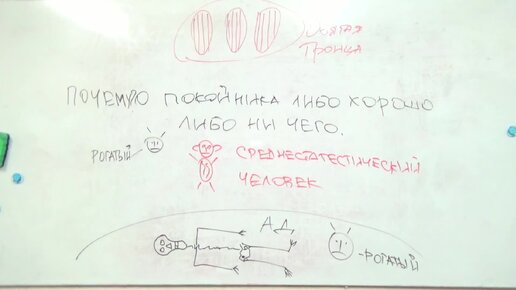 святая
Троица
ПОЧЕМУ О ПОКОЙНИКА ЛИБО ХОРОШО
ЛИБО НИ ЧЕГО.
РОГАТЫЙ
СРЕДНЕСТАТЕСТИЧЕСКИЙ
ЧЕЛОВЕК
АД
-РОГАТЫЙ